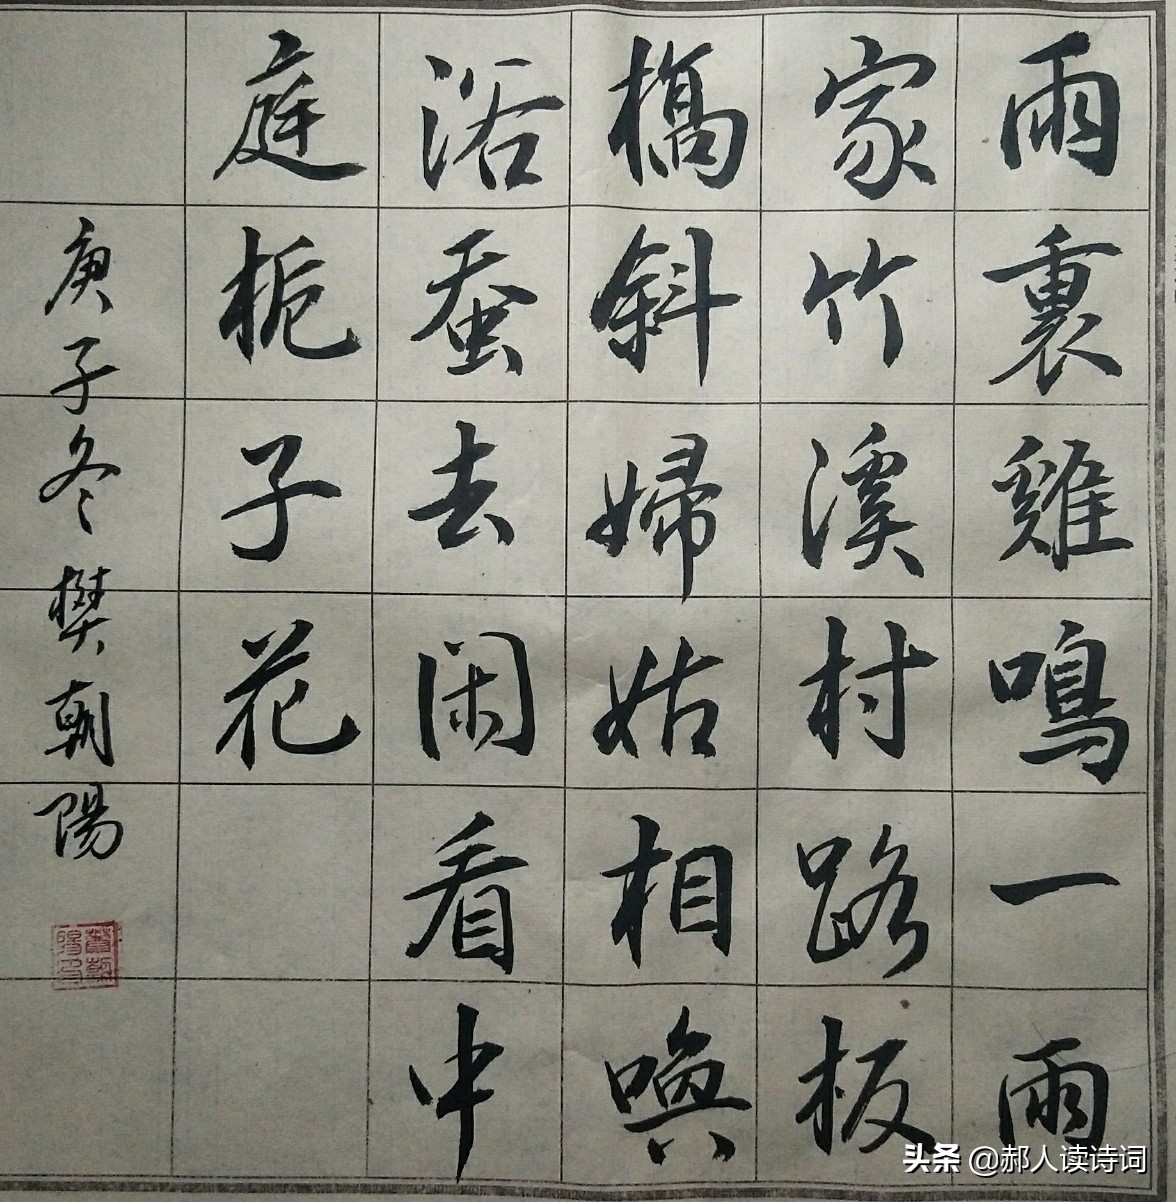 雨裏雞鳴一兩
家竹溪村路板
橋斜婦姑相喚
浴蚕去闲看中
庭栀子花
庚子冬樊朝陽
头条 @郝人读诗词